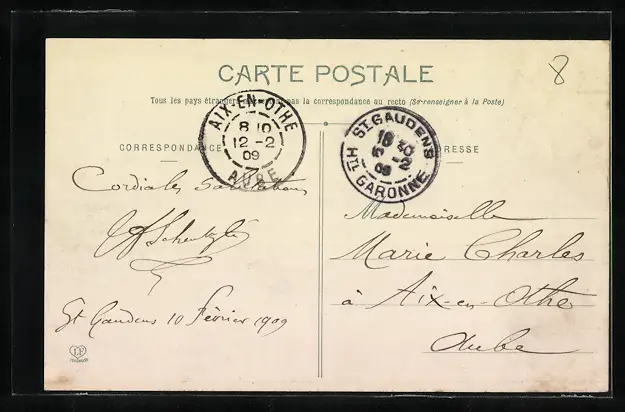 8
CARTE POSTALE
Tous les pays étrangers pas la correspondance au recto (Se renseigner à la Poste)
CORRESPONDANCE
AIX-EN-OTHE
8 10
12 -2
09
AUBE
ST GAUDENS
18 30
-2
09
HTE GARONNE
Cordiales salutations
St Gaudens 10 Février 1909
Mademoiselle
Marie Charles
à Aix-en-Othe
Aube